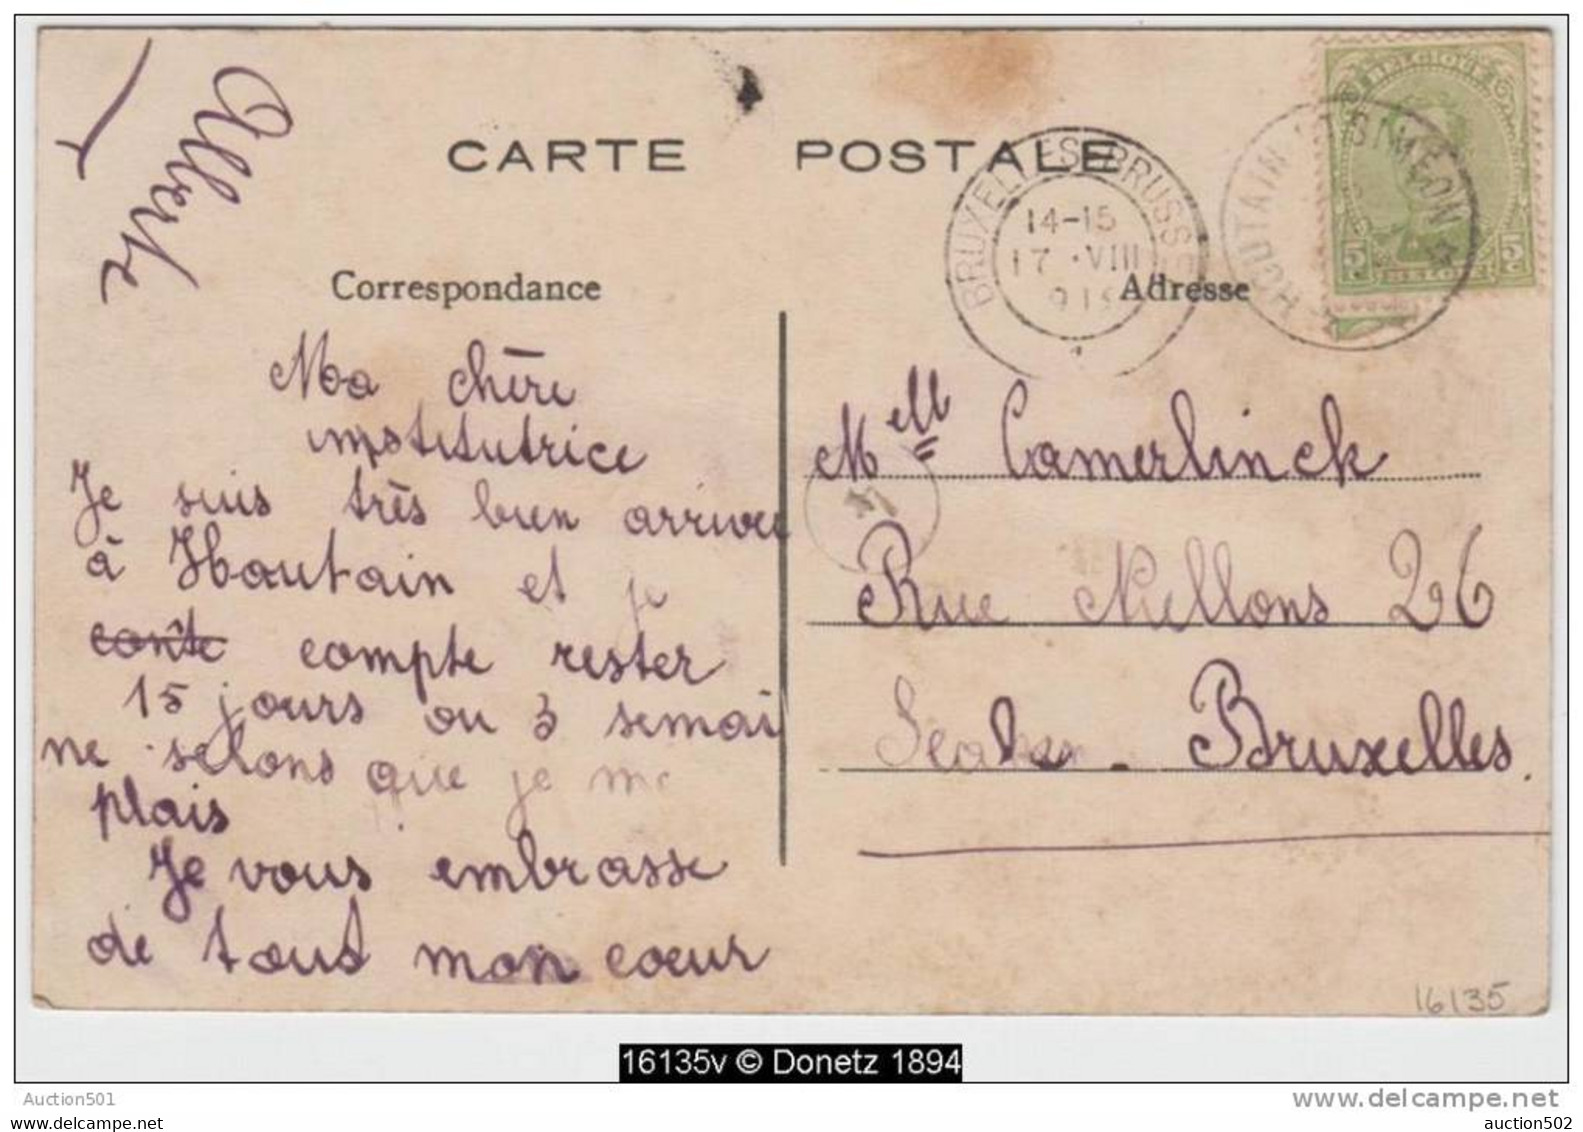 Alberte
CARTE POSTALE
BRUXELLES BRUSSEL
14-15
17 VIII
HOUTAIN ST SIMÉON
BELGIQUE
5 5
Correspondance
Adresse
Ma chère
institutrice
Je suis très bien arrivée
à Houtain et je
conte compte rester
15 jours ou 3 semai
ne selons que je me
plais
Je vous embrasse
de tous mon cœur
Mell Camerlinck
Rue Nullons 26
Bruxelles.
16135
16135v © Donetz 1894
Auction501
www.delcampe.net
auction502
auction502